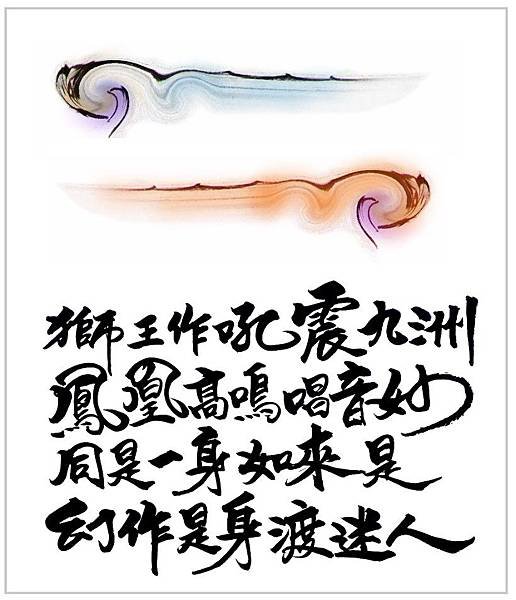 獅王作吼震九洲
鳳凰高鳴唱音妙
同是一身如來是
幻作是身渡迷人